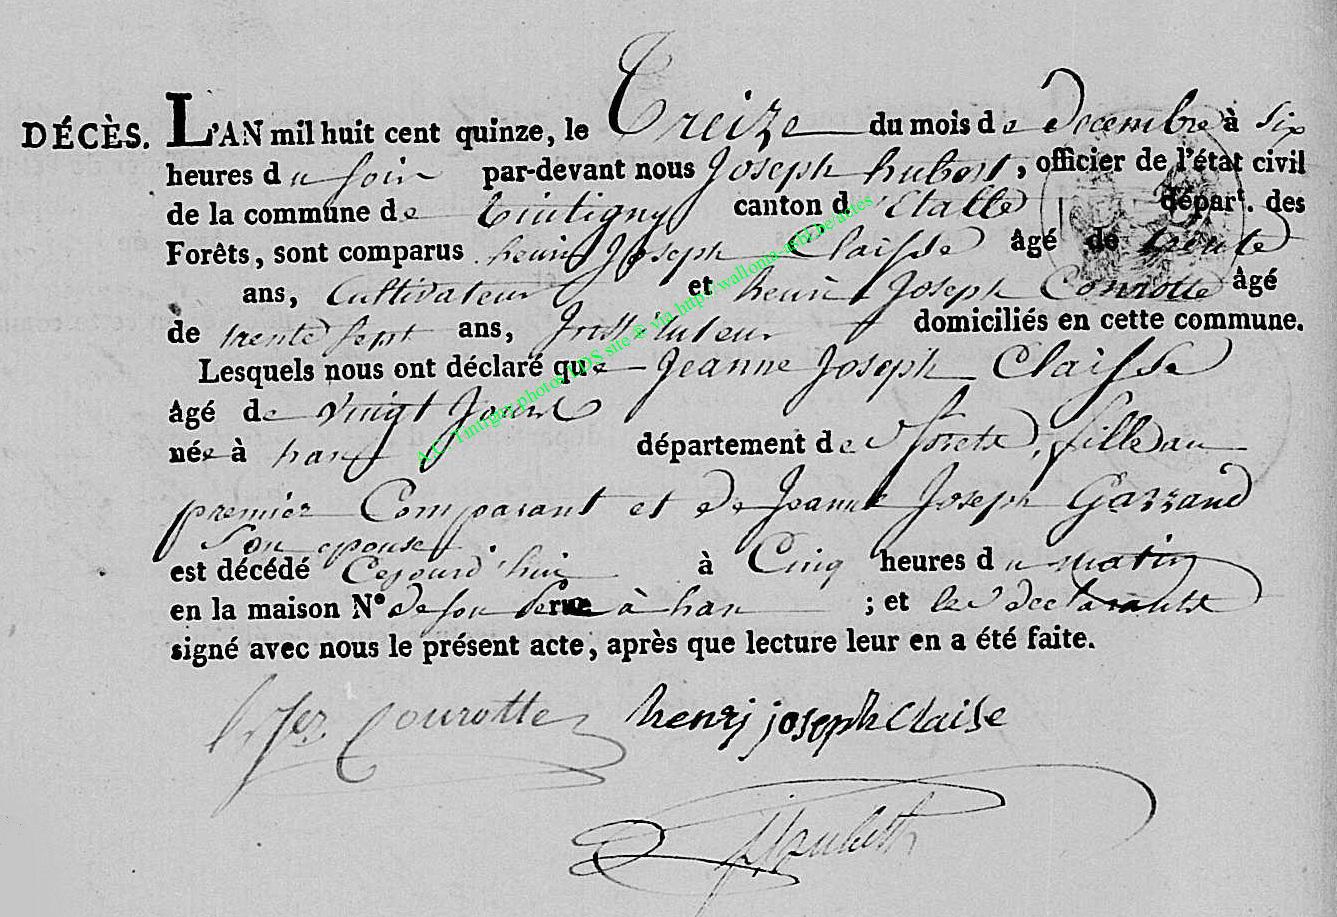 DÉCÈS. L'AN mil huit cent quinze, le Treize du mois de decembre à Six
heures du Soir par-devant nous Joseph hubert, officier de l'état civil
de la commune de tintigny canton d'Etalle départ. des
Forêts, sont comparus henri Joseph Claisse âgé de trente
ans, Cultivateur et henri Joseph Conrotte âgé
de trente Sept ans, Instituteur domiciliés en cette commune.
Lesquels nous ont déclaré que Jeanne Joseph Claisse
âgé de vingt Jours
née à han département des forets, fille du
premier Comparant et de Jeanne Joseph Gazzand
Son epouse
est décédé Cejourd'hui à Cinq heures du matin
en la maison N° de son Pere à han ; et les declarants
signé avec nous le présent acte, après que lecture leur en a été faite.
Conrotte henrj joseph claise
A.C. Tintigny photos LDS site & via http://wallonia-asbl.be/actes